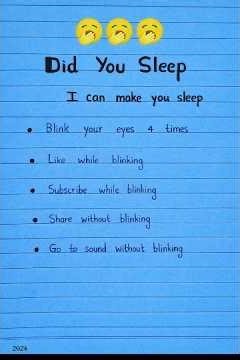 Did You Sleep
I can make you sleep
• Blink your eyes 4 times
• Like while blinking
• Subscribe while blinking
• Share without blinking
• Go to sound without blinking
2024